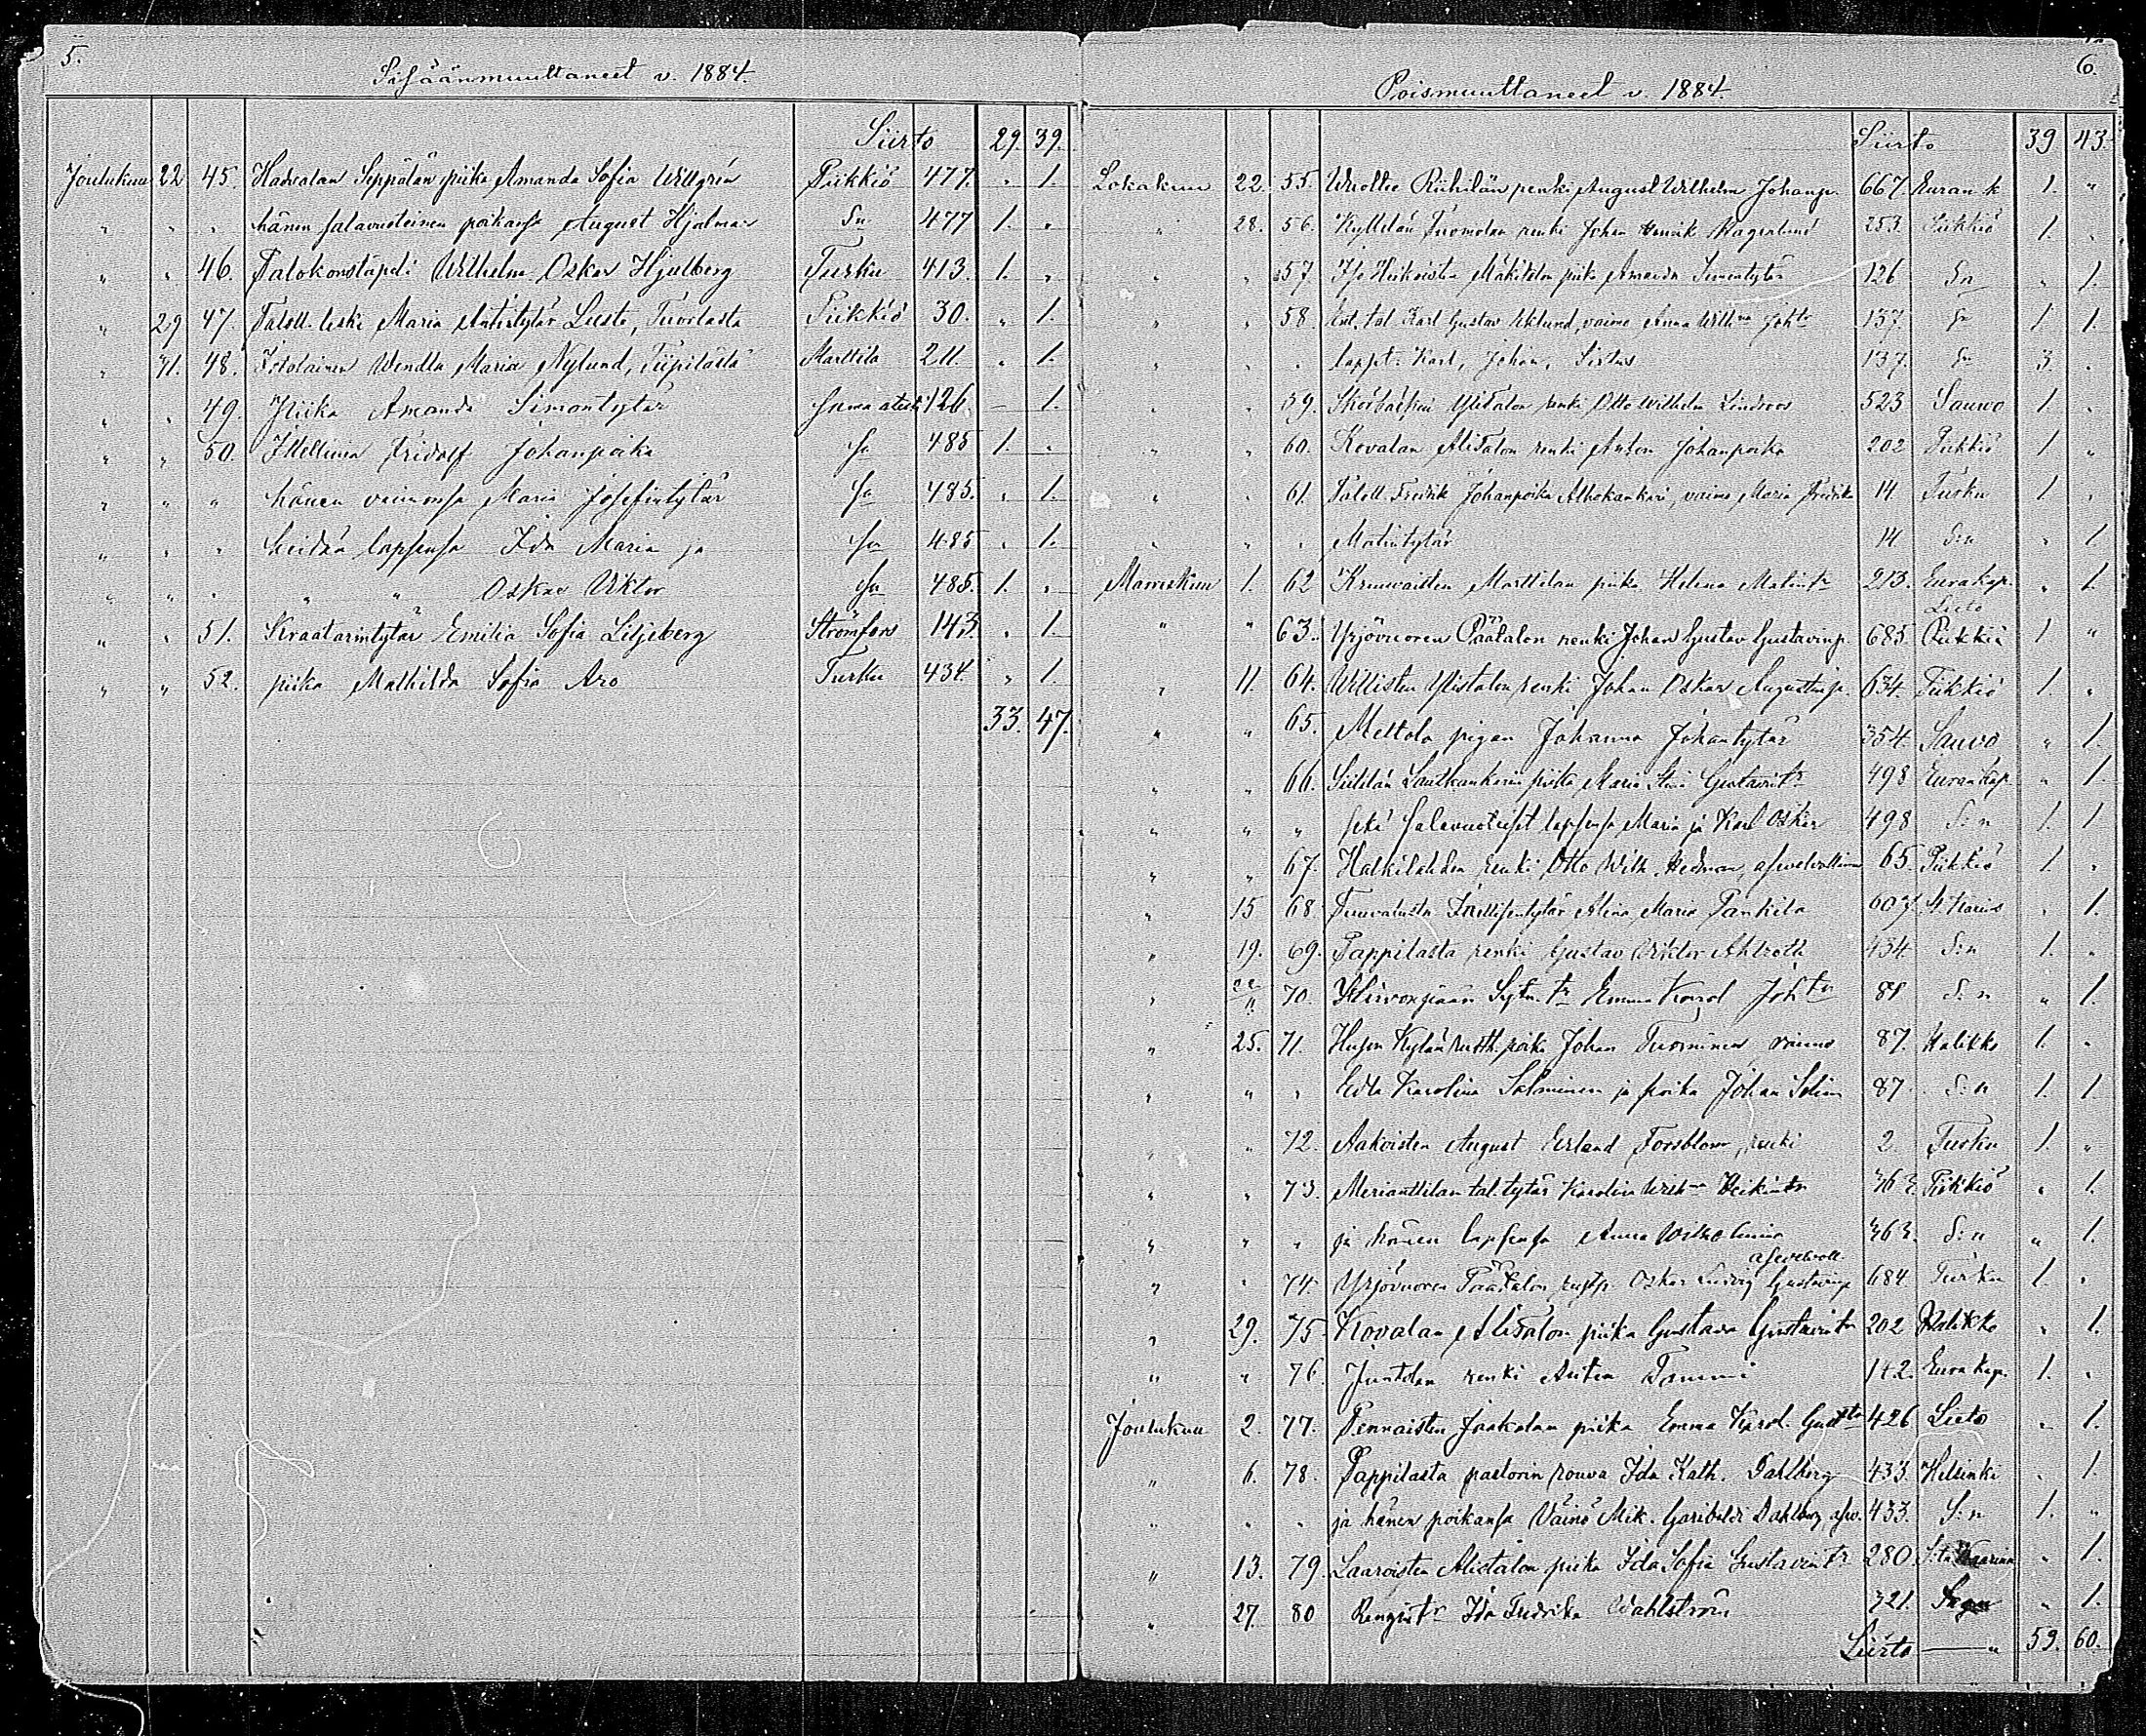 5.
Sisäänmuuttaneet v. 1884.
Siirto 29. 39.
Joulukuu 22 45. Hadvalan Seppälän piika Amanda Sofia Willgrén Piikkiö 477. " 1.
" " " hänen salavuoteinen poikansa August Hjalmar Sn 477 1. "
" " 46. Talokonstapeli Wilhelm Oskar Hjulberg Turku 413. 1. "
" 29 47. Taloll. leski Maria Antintytär Lusto, Tuorlasta Piikkiö 30. " 1.
" 31. 48. Itölainen Wendla Maria Nylund, Tiipilästä Marttila 211. " 1.
" " 49. Piika Amanda Simontytär 126. – 1.
" " 50. Itellinen Fridolf Johanpoika Sn 485 1. "
" " " hänen vaimonsa Maria Josefintytär Sn 485. " 1.
" " " heidän lapsensa Ida Maria ja Sn 485 " 1.
" " " " " Oskar Viktor Sn 485. 1. "
" " 51. Kraatarintytär Emilia Sofia Liljeberg Strömfors 143. " 1.
" " 52. piika Mathilda Sofia Aro Turku 434. " 1.
33. 47.
6.
Poismuuttaneet v. 1884.
Siirto 39 43.
Lokakuu 22. 55. Wuollee Riihilän renki August Wilhelm Johanp. 667 Euran k 1. "
" 28. 56. Kyllelän Tuomolan renki Johan Henrik Hagerlund 253. Piikkiö 1. "
" " 57. Iso Heikoisten Mäkitalon piika Amanda Simontytär 126 Sn " 1.
" " 58. Ent. tal. Karl Gustav Eklund, vaimo Anna Wilhna Johtr 137. Sn 1 1.
" " " lapset. Karl, Johan, Sixtus 137. Sn 3 "
" " 59. Ylistalon renki Otto Wilhelm Lindroos 523 Sauvo 1. "
" " 60. Kevalan Alistalon renki Anton Johanpoika 202 Piikkiö 1 "
" " 61. Taloll. Fredrik Johanpoika Alhokankari, vaimo Maria Fredrika 14 Turku 1 "
" " " Matintytär 14 S:n " 1
Marraskuu 1. 62 Kruuvaisten Marttilan piika Helena Matintr 213. Eurakap. " 1.
Lieto
" " 63. Yrjövuoren Päätalon renki Johan Gustav Gustavinp. 685. Piikkiö 1 "
" 11. 64. Willisten Ylistalon renki Johan Oskar Augustinp. 634. Piikkiö 1. "
" " 65. Meltola pigan Johanna Johantytär 354. Sauvo " 1.
" " 66. Siililän Lautkankarin piika Maria Stina Gustavintr 498 Eurankap. " 1.
" " " sekä salavuoteiset lapsensa Maria ja Karl Oskar 498 S:n 1. 1
" " 67. Halkilahden renki Otto Wilh. Hedman, asevelvollinen 65. Piikkiö 1. "
" 15 68. Tuuvalusta Itellisentytär Alina Maria Pankila 607. St Karins " 1.
" 19. 69. Pappilasta renki Gustav Viktor Ahlroth 434. S:n 1. "
" 22 70. Hirvonpään Emma Karol Johtr 88 S:n " 1.
" 25. 71. Hujon Kylän rustth.poika Johan Tuominen vaimo 87. Halikko 1. "
" " " Edla Karolina Salminen ja poika Johan Selim 87. S:n 1. 1.
" " 72. Aakoisten August Erland Forsblom, renki 2 Turku 1. "
" " 73. Merianttilan tal.tytär Karolina Wilhna Heikintr 363. Piikkiö " 1.
" " " ja hänen lapsensa Anna Wilhelmina 363. S:n " 1.
asevelvoll.
" " 74. Yrjövuoren Päätalon rustp. Oskar Ludvig Gustavinp 684 Turku 1. "
" 29. 75. Kovalan Alistalon piika Gustava Gustavintr 202 Halikko " 1.
" " 76. Juntolan renki Antin Tammi 142. Eura kap. 1. "
Joulukuu 2. 77. Pennaisten Jaakolan piika Emma Karol. Gusttr 426 Lieto " 1.
" 6. 78. Pappilasta pastorin rouva Ida Kath. Dahlberg 433. Helsinki " 1.
" " " ja hänen poikansa Väinö Mik. Garibaldi Dahlberg asv. 433. S:n 1. "
" 13. 79. Lauroisten Alistalon piika Ida Sofia Gustavintr 280 S:ta Kaarina " 1.
" 27. 80 Rengintr Ida Fredrika Wahlström 321. " 1.
Siirto — " 59. 60.